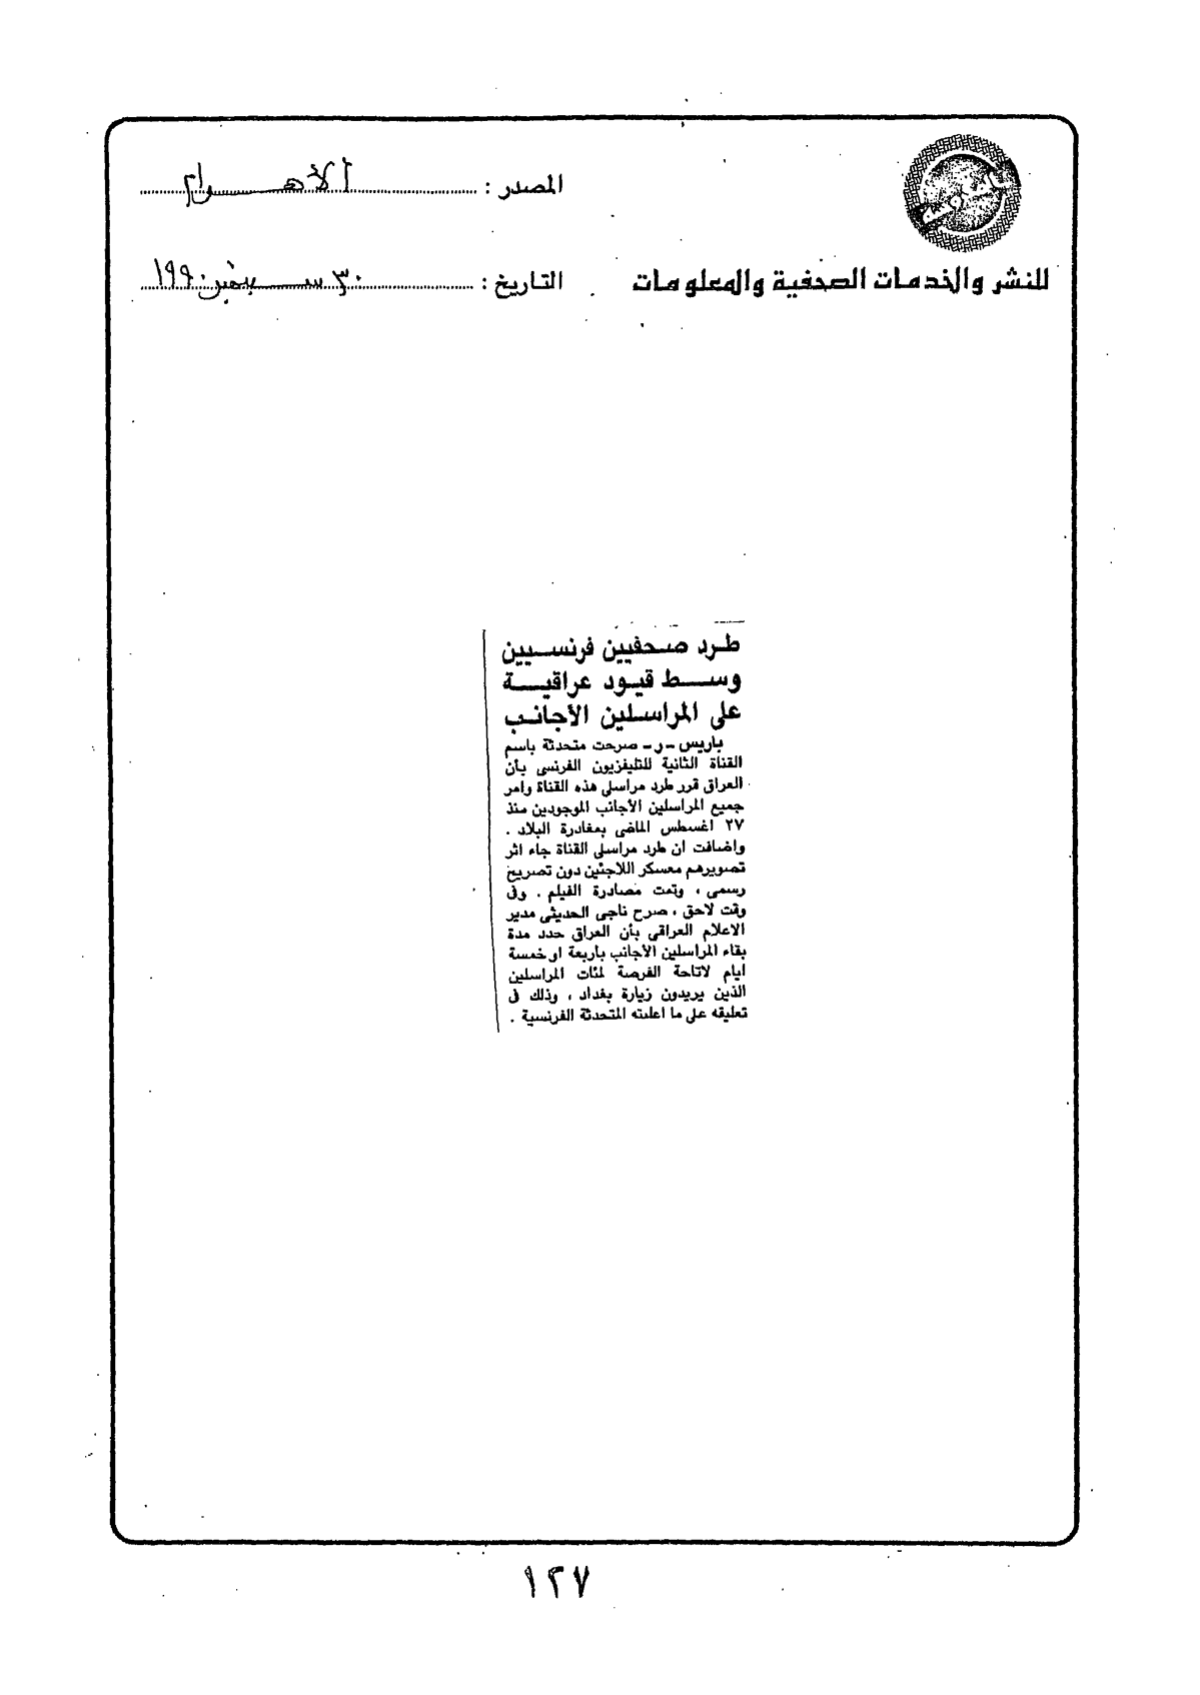 المصدر : الأهرام
للنشر والخدمات الصحفية والمعلومات
التاريخ : ٣٠ سبتمبر ١٩٩٠
طرد صحفيين فرنسيين
وسط قيود عراقية
على المراسلين الأجانب
باريس - ر - صرحت متحدثة باسم
القناة الثانية للتليفزيون الفرنسى بأن
العراق قرر طرد مراسلى هذه القناة وامر
جميع المراسلين الأجانب الموجودين منذ
٢٧ اغسطس الماضى بمغادرة البلاد .
واضافت ان طرد مراسلى القناة جاء اثر
تصويرهم معسكر اللاجئين دون تصريح
رسمى ، وتمت مصادرة الفيلم . وفى
وقت لاحق ، صرح ناجى الحديثى مدير
الاعلام العراقى بأن العراق حدد مدة
بقاء المراسلين الأجانب بأربعة او خمسة
ايام لاتاحة الفرصة لمئات المراسلين
الذين يريدون زيارة بغداد ، وذلك فى
تعليقه على ما اعلنته المتحدثة الفرنسية .
١٢٧